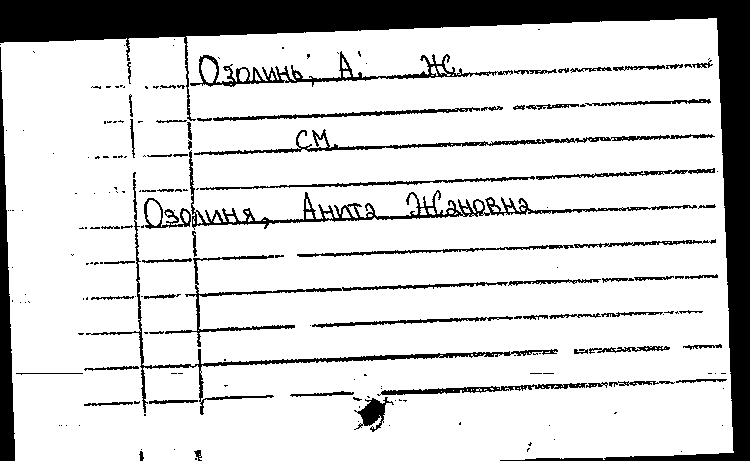 Озолинь, А. Ж.
см.
Озолиня, Анита Жановна